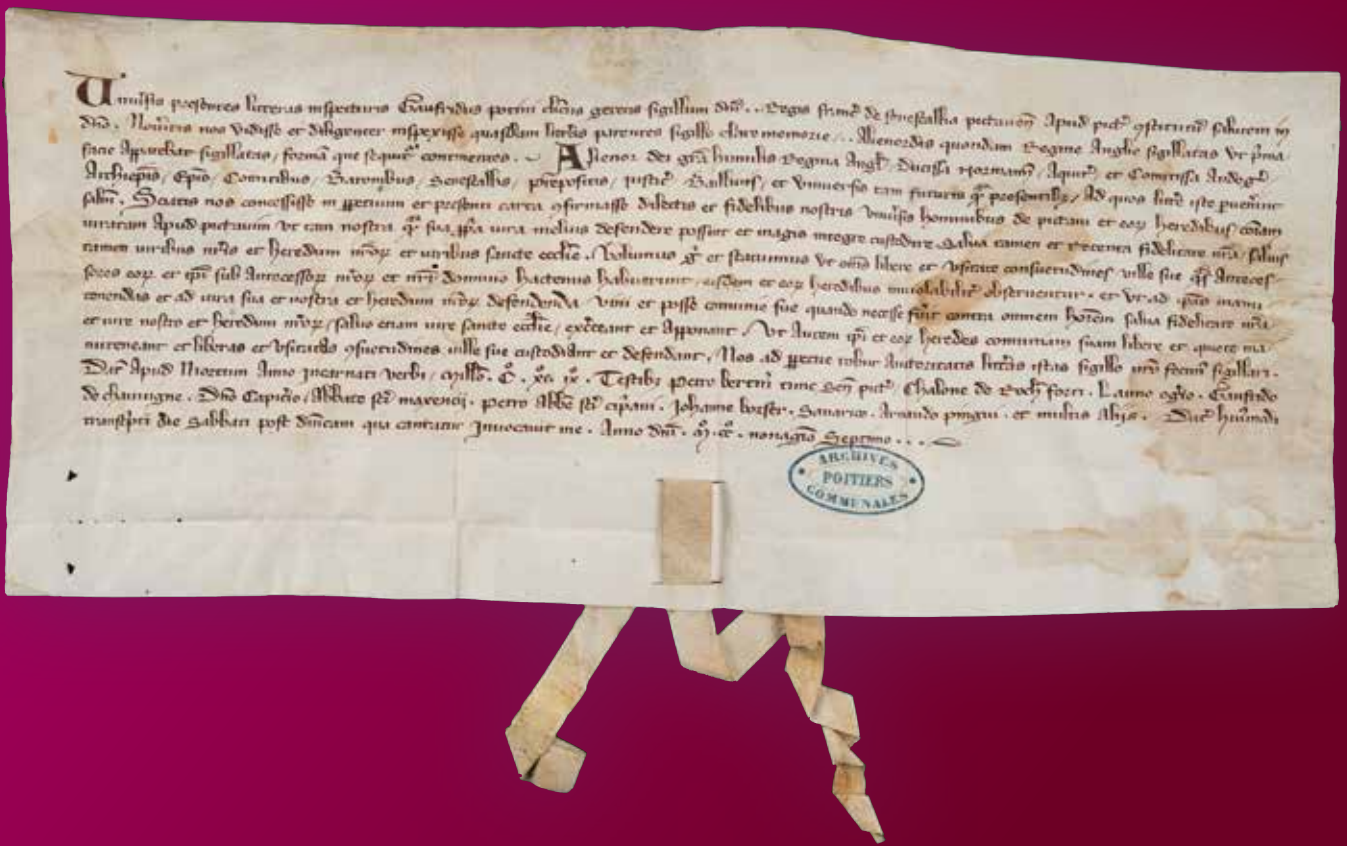 Univ̾sis presentes litteras inspecturis Gaufridus potini cl̾icus gerens sigillum dn̄i . . Regis franc̾ de senescallia pictaven̄ Apud pict̾ 9stitutū salutem in
dn̄o . Nov̾itis nos vidisse et diligenter inspexisse quasdam litt̾as patentes sigillo clare memorie . . Alienordis quondam Regine Anglie sigillatas ut p̾ma
facie Apparebat sigillatas / formā que sequit̾ continentes . Alienor dei gr̄a humilis Regina Angl̾ / Ducissa Normann̄ / Aquit̾ et Comitissa Andeg̾
Archiep̄is / Ep̄is / Comitibus / Baronibus / Senescallis / prepositis / justic̾ / Baillivis / et universis tam futuris q̄ presentib; / Ad quos litt̾e iste pervenerint
salt̄m . Sciatis nos concessisse in p̱petuum et presenti carta 9firmasse dilectis et fidelibus nostris univ̾sis hominibus de pictavi et eoꝝ heredibus com̄am
juratam Apud pictavim ut tam nostra q̄ sua p̱p̾a jura melius defendere possint et magis integre custodire Salva tamen et retenta fidelitate nr̄a / salvis
tamen juribus nr̄is et heredum nr̄oꝝ et juribus sancte eccl̾ie . Volumus g̾ et statuimus ut om̄s libere et usitate consuetudines ville sue q̄s Anteces-
sores eoꝝ et ip̄i sub Antecessoꝝ nr̄oꝝ et nr̄i dominio hactenus habuerunt / eisdem et eoꝝ heredibus inviolabilit̾ observentur . et ut ad ip̄as manu
tenendas et ad jura sua et nostra et heredum nr̄oꝝ defendenda vim et posse comunie sue quando necesse fu̾it contra omnem hoīem salva fidelitate nr̄a
et jure nostro et heredum nr̄oꝝ / salvo etiam jure sancte eccl̾ie / exerceant et Apponant . Ut Autem ip̄i et eoꝝ heredes comuniam suam libere et quiete ma-
nuteneant et liberas et usitatas 9suetudines ville sue custodiant et defendant / Nos ad p̱petue robur Autoritatis litt̾as istas sigillo nr̄o fecimus sigillari .
Dat̾ Apud Niortum Anno incarnati verbi / Millo̅ . C̊ . xc̊ ix̊ . Testib; petro bertini tunc Sen̄ pict̾ / Chalone de Roch̾ forti . Launo ogero . Gaufrido
de chavigne . Dn̄o Capicio / Abbate sc̄i maxencii . petro Abb̄e sc̄i cip̾ani . Johanne borser . Savarico . Arnaudo pingui . et multis Aliis . Dat̾ huj̾modi
transc̾pti die Sabbati post dn̄icam qua cantatur Invocavit me . Anno dn̄i . M̊ . CC̊ . nonagīo Septimo . . .
ARCHIVES
POITIERS
COMMUNALES